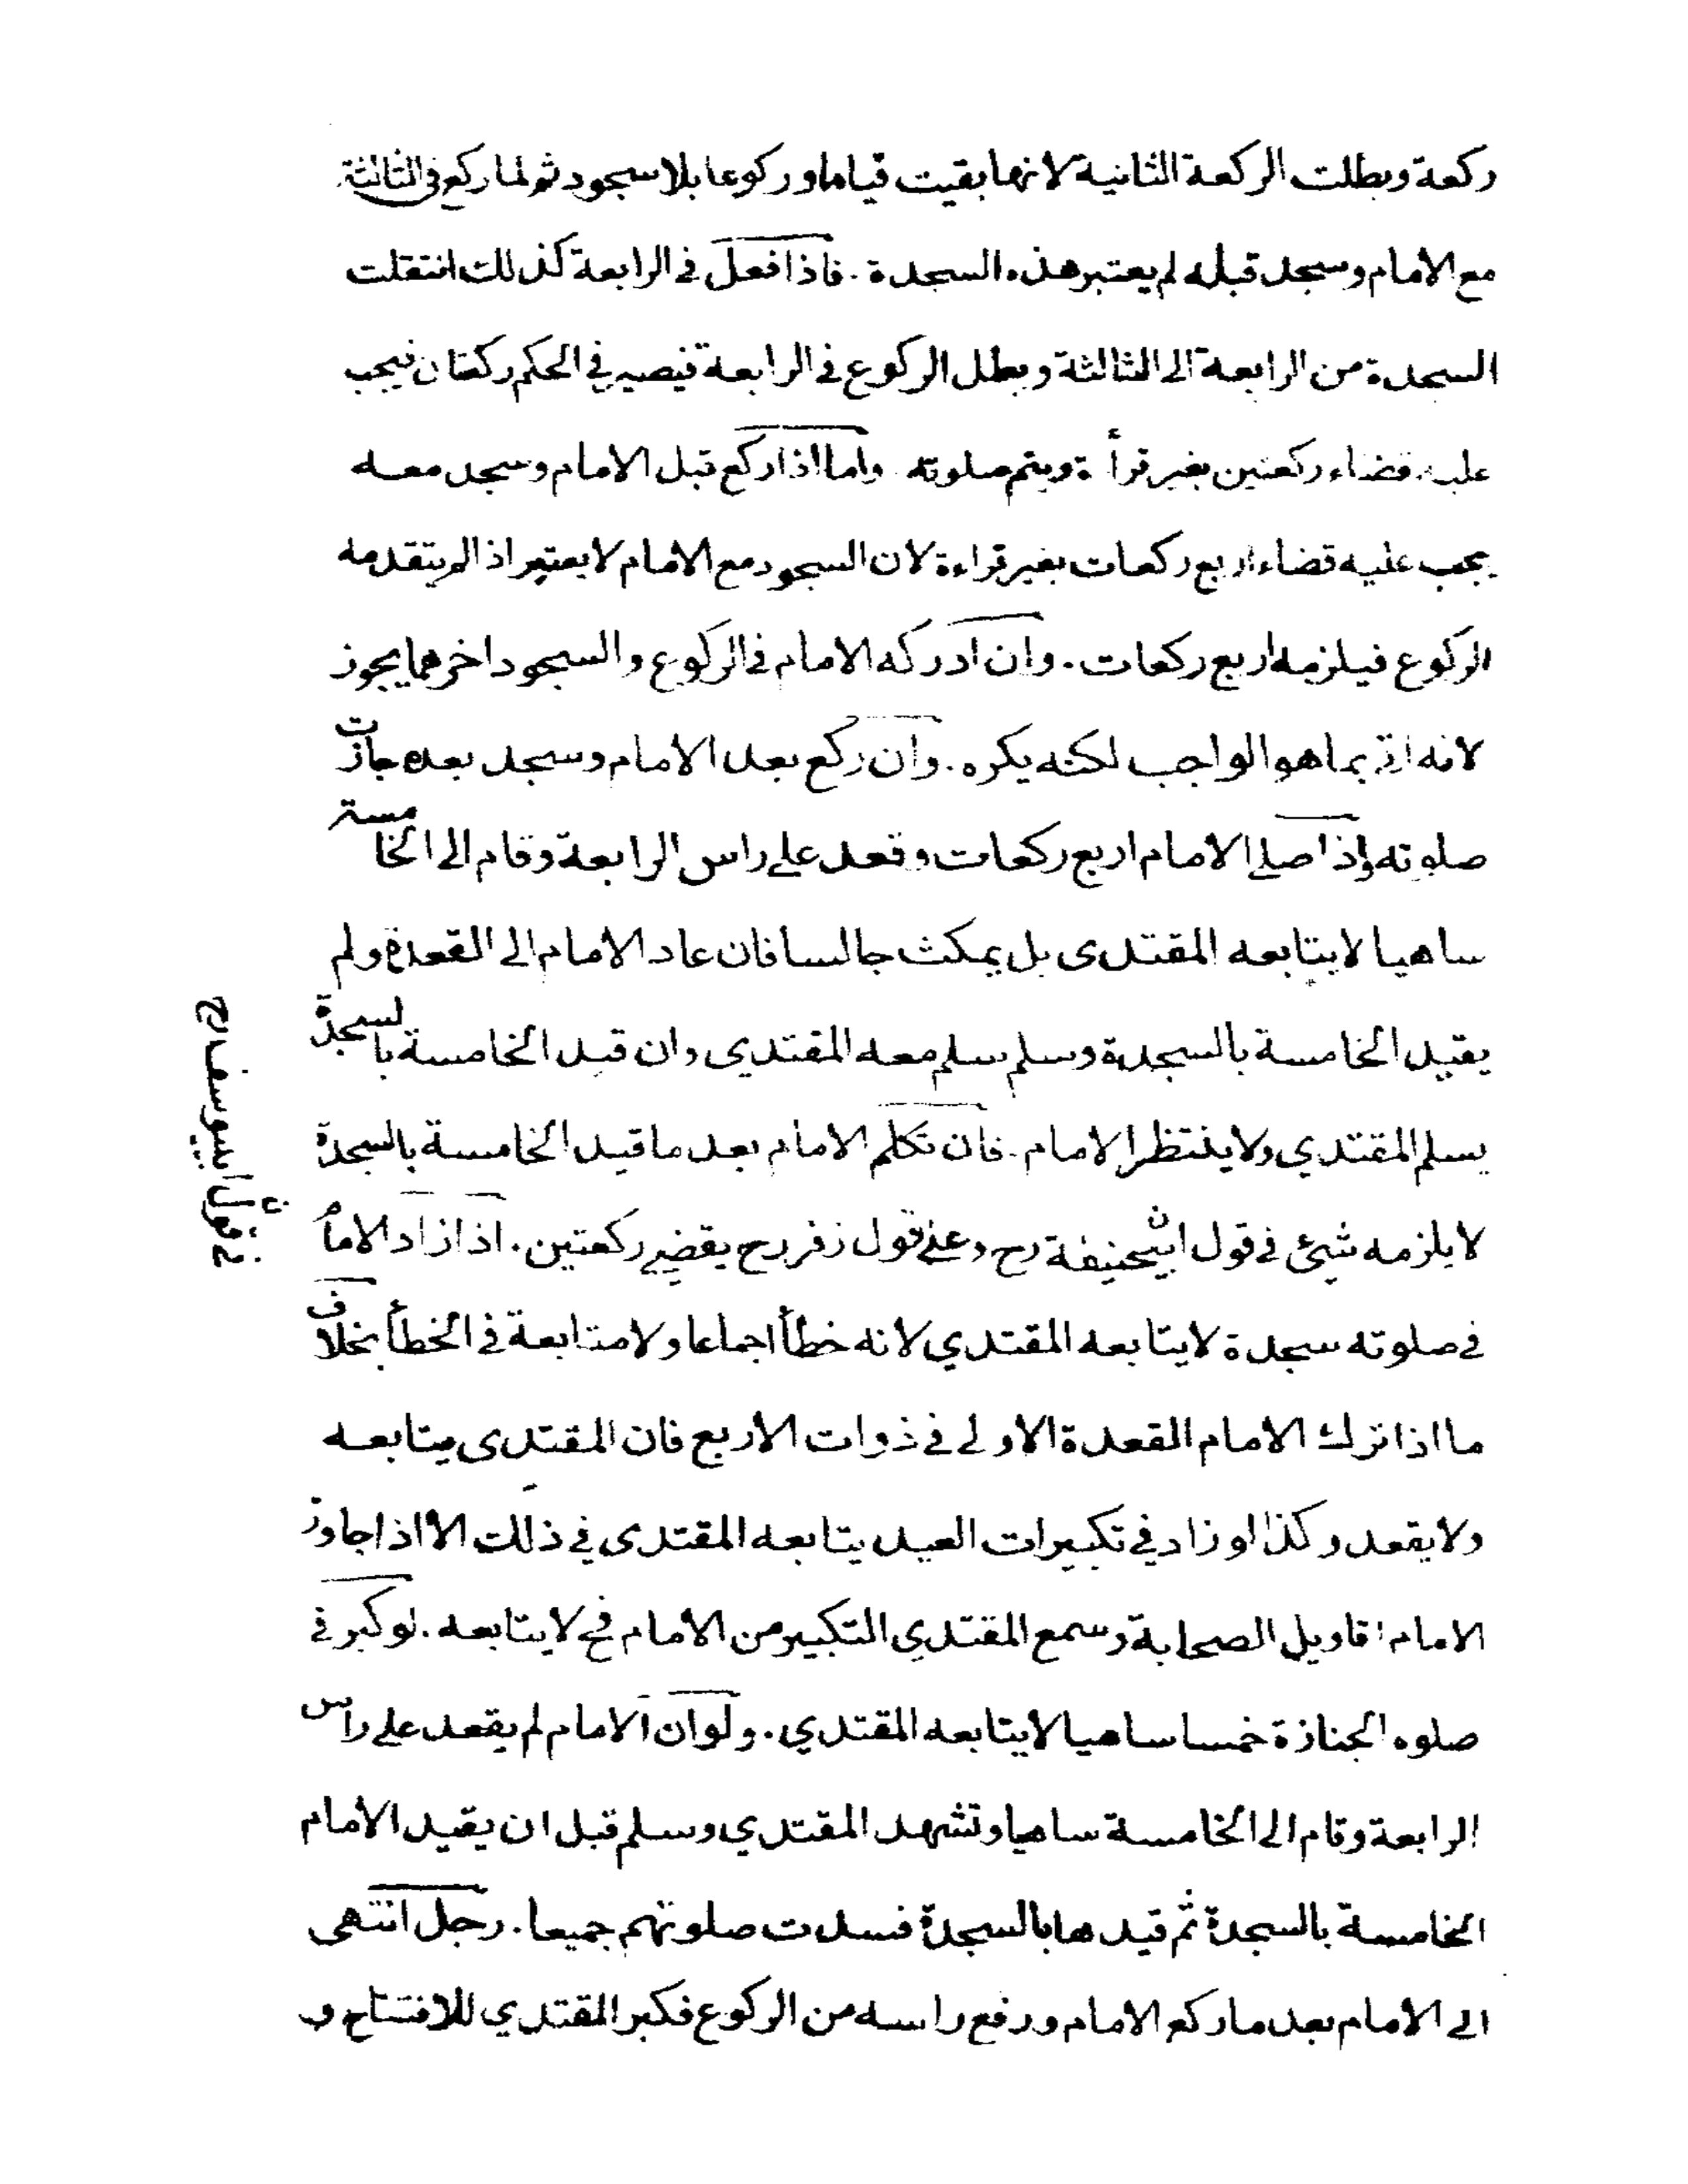 ركعة وبطلت الركعة الثانية لانها بقيت قياما وركوعا بلا سجود ثم لما ركع في الثالثة
مع الامام وسجد قبله لم يعتبر هذه السجدة . فاذا فعل في الرابعة كذلك انتقلت
السجدة من الرابعة الى الثالثة وبطل الركوع في الرابعة فيصير في الحكم ركعتان فيجب
عليه قضاء ركعتين بغير قرأة ويتم صلوته واما اذا ركع قبل الامام وسجد معه
يجب عليه قضاء اربع ركعات بغير قراءة لان السجود مع الامام لا يعتبر اذا لم يتقدمه
الركوع فيلزمه اربع ركعات . وان ادركه الامام في الركوع والسجود اخرهما يجوز
لانه اتى بما هو الواجب لكنه يكره . وان ركع بعد الامام وسجد بعده جازت
صلوته واذا صلى الامام اربع ركعات وقعد على راس الرابعة وقام الى الخامسة
ساهيا لا يتابعه المقتدى بل يمكث جالسا فان عاد الامام الى القعدة ولم
يقيد الخامسة بالسجدة وسلم سلم معه المقتدي وان قيد الخامسة بالسجدة
يسلم المقتدي ولا ينتظر الامام . فان تكلم الامام بعد ما قيد الخامسة بالسجدة
لا يلزمه شيئ في قول ابيحنيفة رح وعلى قول زفر رح يقضي ركعتين . اذا زاد الامام
في صلوته سجدة لا يتابعه المقتدي لانه خطأ اجماعا ولا متابعة في الخطأ بخلاف
ما اذا ترك الامام القعدة الاولى في ذوات الاربع فان المقتدى يتابعه
ولا يقعد وكذا لو زاد في تكبيرات العيد يتابعه المقتدى في ذلك الا اذا جاوز
الامام اقاويل الصحابة وسمع المقتدي التكبير من الامام فح لا يتابعه . لو كبر في
صلوه الجنازة خمسا ساهيا لا يتابعه المقتدي . ولو ان الامام لم يقعد على راس
الرابعة وقام الى الخامسة ساهيا وتشهد المقتدي وسلم قبل ان يقيد الامام
الخامسة بالسجدة ثم قيدها بالسجدة فسدت صلوتهم جميعا . رجل انتهى
الى الامام بعد ما ركع الامام ورفع راسه من الركوع فكبر المقتدي للافتتاح و
في قول ابييوسف رح